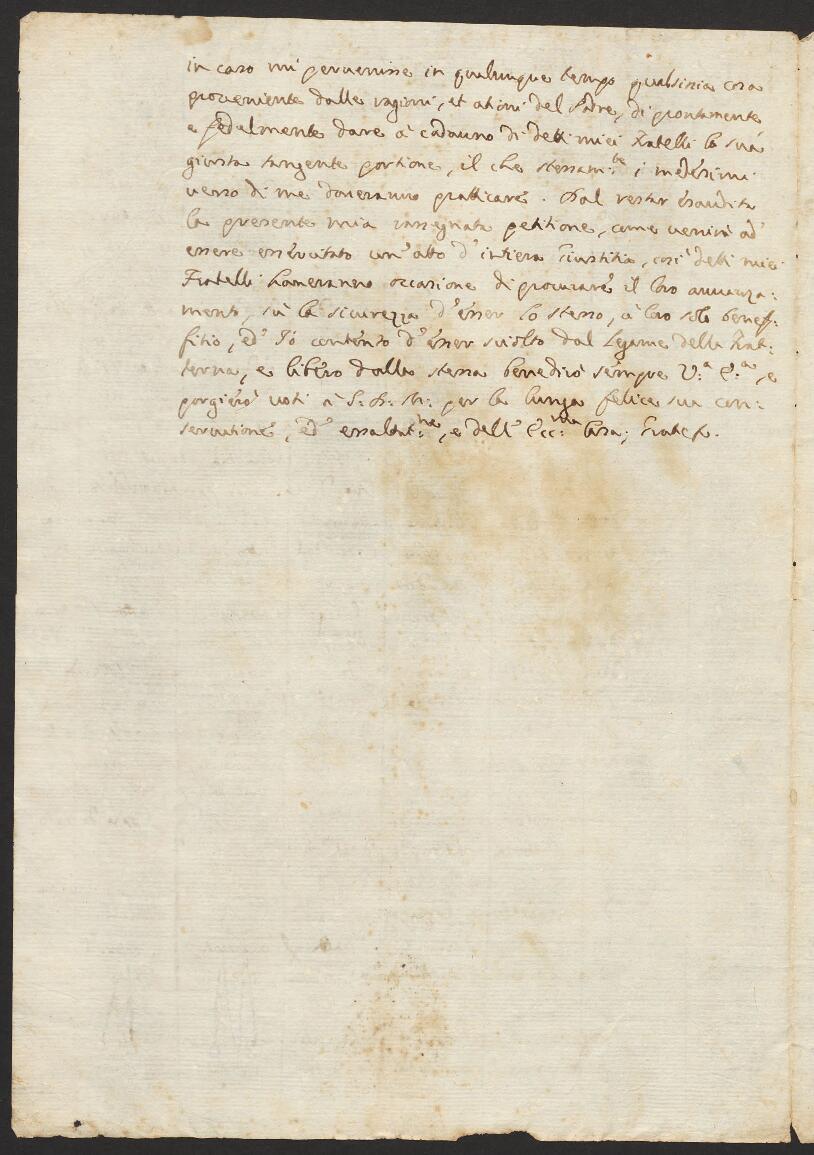 in caso mi pervenisse in qualunque tempo qualsisia cosa
proveniente dalle ragioni, et ationi del Padre, di prontamente
e fedelmente dare à cadauno di detti miei Fratelli la sua
giusta tangente portione, il che stessam:te i medesimi
verso di me doveranno pratticare. Dal restar esaudita
la presente mia rassegnata petitione, come verrà ad
essere essercitato un' atto d' intiera Giustitia, così detti miei
Fratelli haveranno occasione di procurare il loro avvanza:
mento, sù la sicurezza d' esser lo stesso, à loro solo benef:
fitio, ed' Io contento d' esser sciolto dal legame della Frat:
terna, e libero dalla stessa benedirò sempre V:a E:a, e
porgierò voti à S: D: M: per la lunga felice sua con:
servatione, ed' essaltat:ne, e dell' Ecc:ma Casa;